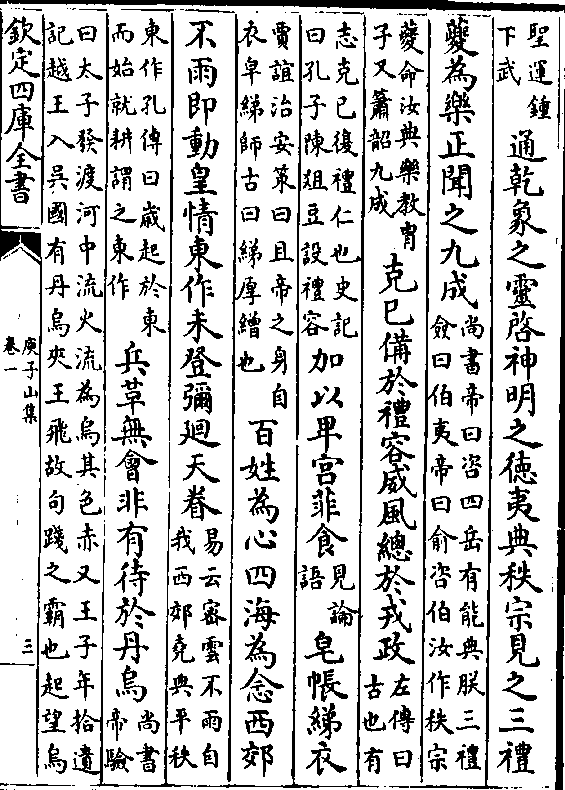 聖運鍾下武通乾象之靈啓神明之徳夷典秩宗見之三禮
夔為樂正聞之九成尚書帝曰咨四岳有能典朕三禮僉曰伯夷帝曰俞咨伯汝作秩宗
夔命汝典樂教胄子又簫韶九成克已備於禮容威風總於戎政左傳曰古也有
志克已復禮仁也史記曰孔子陳俎豆設禮容加以卑宫菲食見論語皂帳綈衣
賈誼治安策曰且帝之身自衣皁綈師古曰綈厚繒也百姓為心四海為念西郊
不雨即動皇情東作未登彌廻天眷易云密雲不雨自我西郊堯典平秩
東作孔傳曰歲起於東而始就耕謂之東作兵革無會非有待於丹烏尚書帝驗
曰太子發渡河中流火流為烏其色赤又王子年拾遺記越王入吳國有丹烏夾王飛故句踐之霸也起望烏
欽定四庫全書
庾子山集
卷一
三